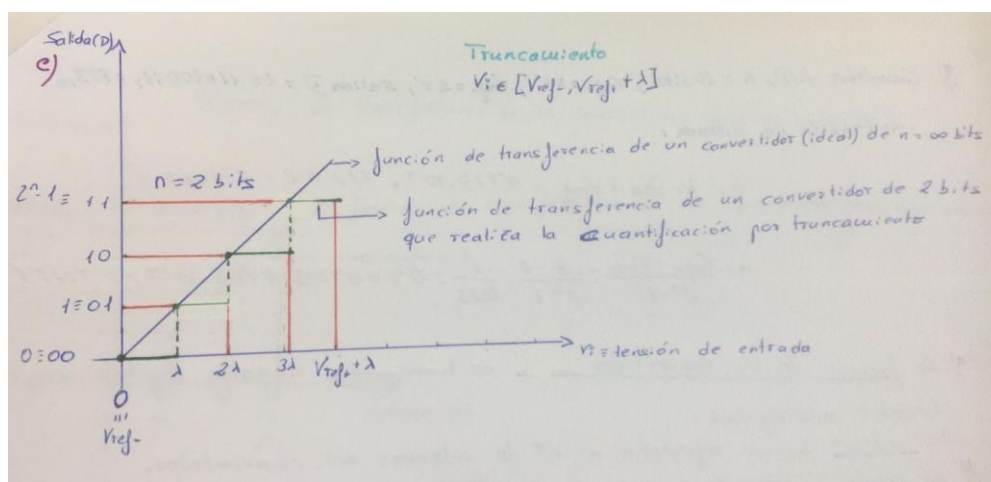 Salida(D)
c)
Truncamiento
Vi ∈ [Vref-, Vref+ + λ]
función de transferencia de un convertidor (ideal) de n = ∞ bits
n = 2 bits
2ⁿ-1 ≡ 11
función de transferencia de un convertidor de 2 bits
que realiza la cuantificación por truncamiento
10
1 ≡ 01
0 ≡ 00
λ 2λ 3λ Vref+ + λ
Vi ≡ tensión de entrada
0
≡
Vref-